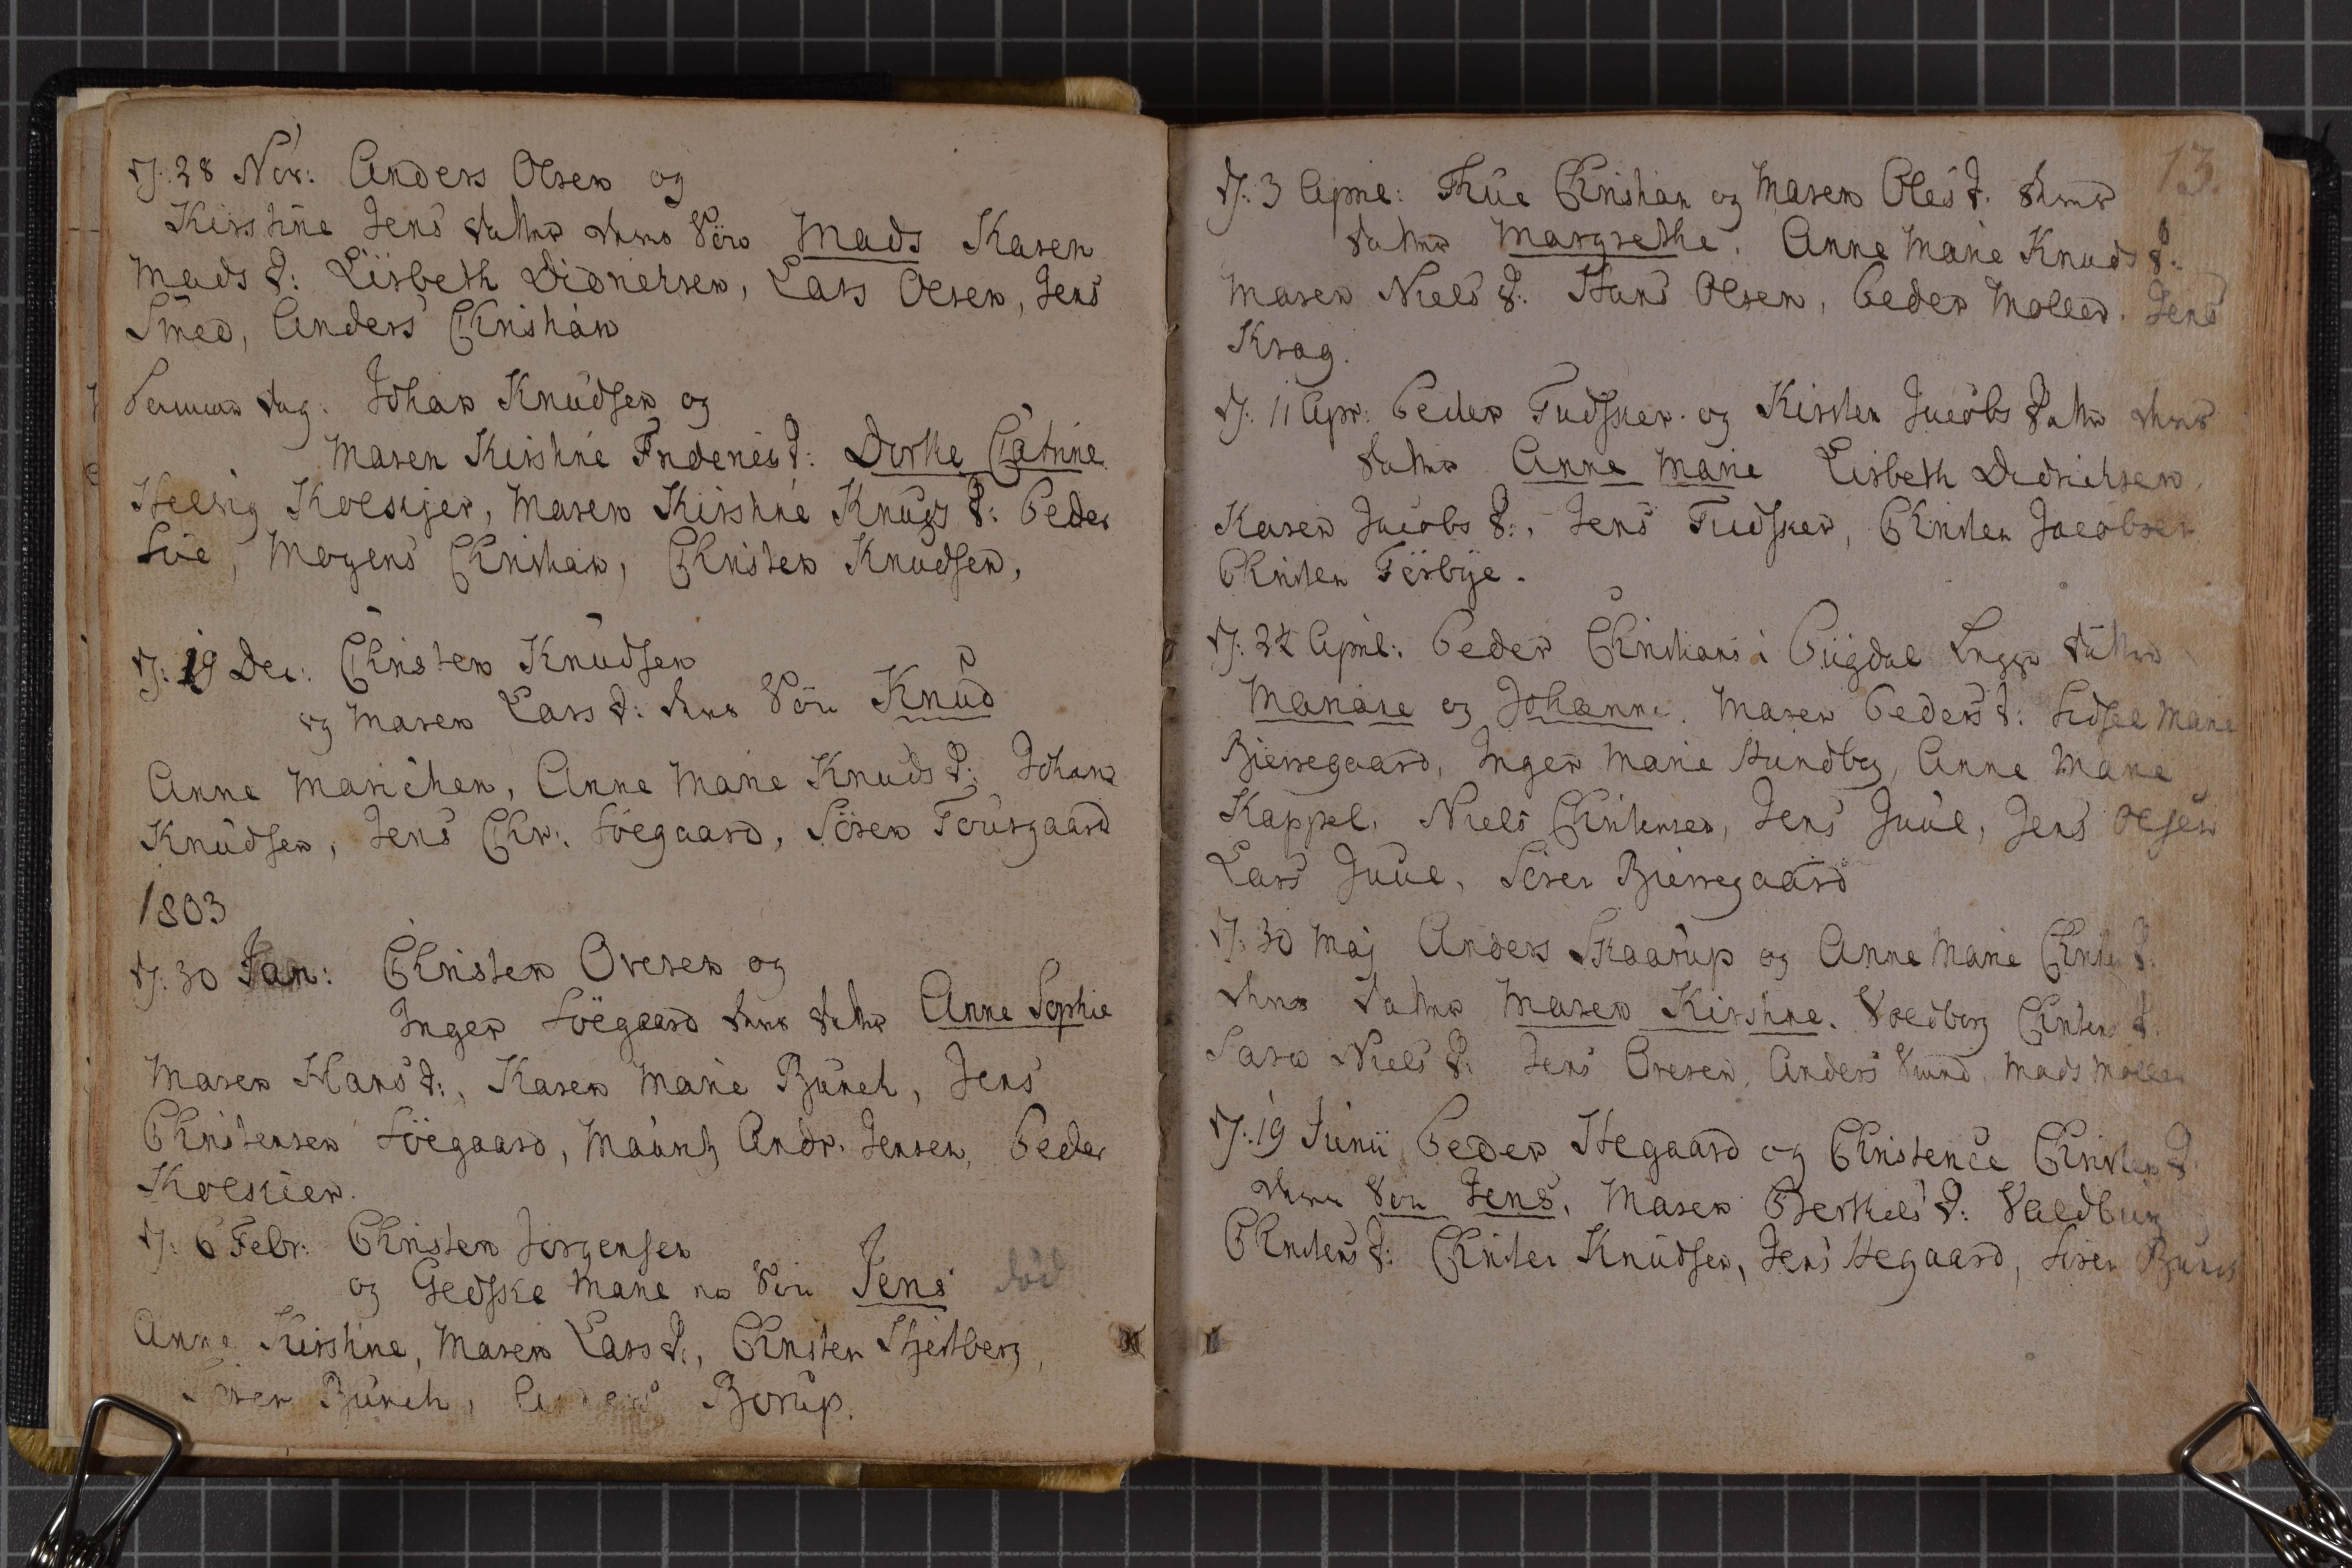 D: 28 Nov: Anders Olsen og
Kirstine Jens datter deres Sön Mads Karen
Mads D: Lisbeth Didrichsen, Lars Olsen, Jens
Smed, Anders Christian
Samme dag. Johan Knudsen og
Maren Kirstine Frideric D: Dorthe Catrine
Helvig Kolskjer, Maren Kirstine Knuds D: Peder
Mogens Christian, Christen Knudsen,
D: 19 Dec: Christen Knudsen
og Maren Lars D: deres Sön Knud
Anne Marichen, Anne Marie Knuds D: Johan
Knudsen, Jens Chr: Söegaard, Sören Tousgaard
1803
D: 30 Jan: Christen Ovesen og
Inger Söegaard deres datter Anne Sophie
Maren Hans D:, Karen Marie Bunch, Jens
Christensen Söegaard, Mauritz Andr. Jensen, Peder
Kolskier.
D: 6 Febr: Christen Jorgensen
og Gedske Marie Sön Jens död
Anne Kirstine, Maren Lars D:, Christen Stjernberg,
Sören Bunch, Anders Borup.
13.
D: 3 April: Thue Christian og Maren Oles D. deres
datter Margrethe. Anne Marie Knuds D:
Maren Niels D: Hans Olsen, Peder Moller. Jens
Krag.
D: 11 Apr: Peder Tudsker og Kirsten Jacobs Datter deres
datter Anne Marie Lisbeth Didrichsen,
Karen Jacobs D:, Jens Tudsker, Christen Jacobsen
Christen Törbye.
D: 24 April: Peder Christians i Bügdal datter
Mariane og Johanne. Maren Peders D: Sidsel Marie
Bierregaard, Inger Marie Hundborg, Anne Marie
Kappel, Niels Christensen, Jens Juul, Jens Olsen
Lars Juul, Sören Bierregaard
D: 30 Maj Anders Skaarup og Anne Marie Christens D.
deres datter Maren Kirstine. Voldborg Christens D.
Niels D: Jens Ovesen, Anders Mads Moller
D: 19 Junii Peder Hegaard og Christence Christens D.
deres Sön Jens, Maren Berthels D: Valdborg
Christens D: Christen Knudsen, Jens Hegaard, Sören Bunch